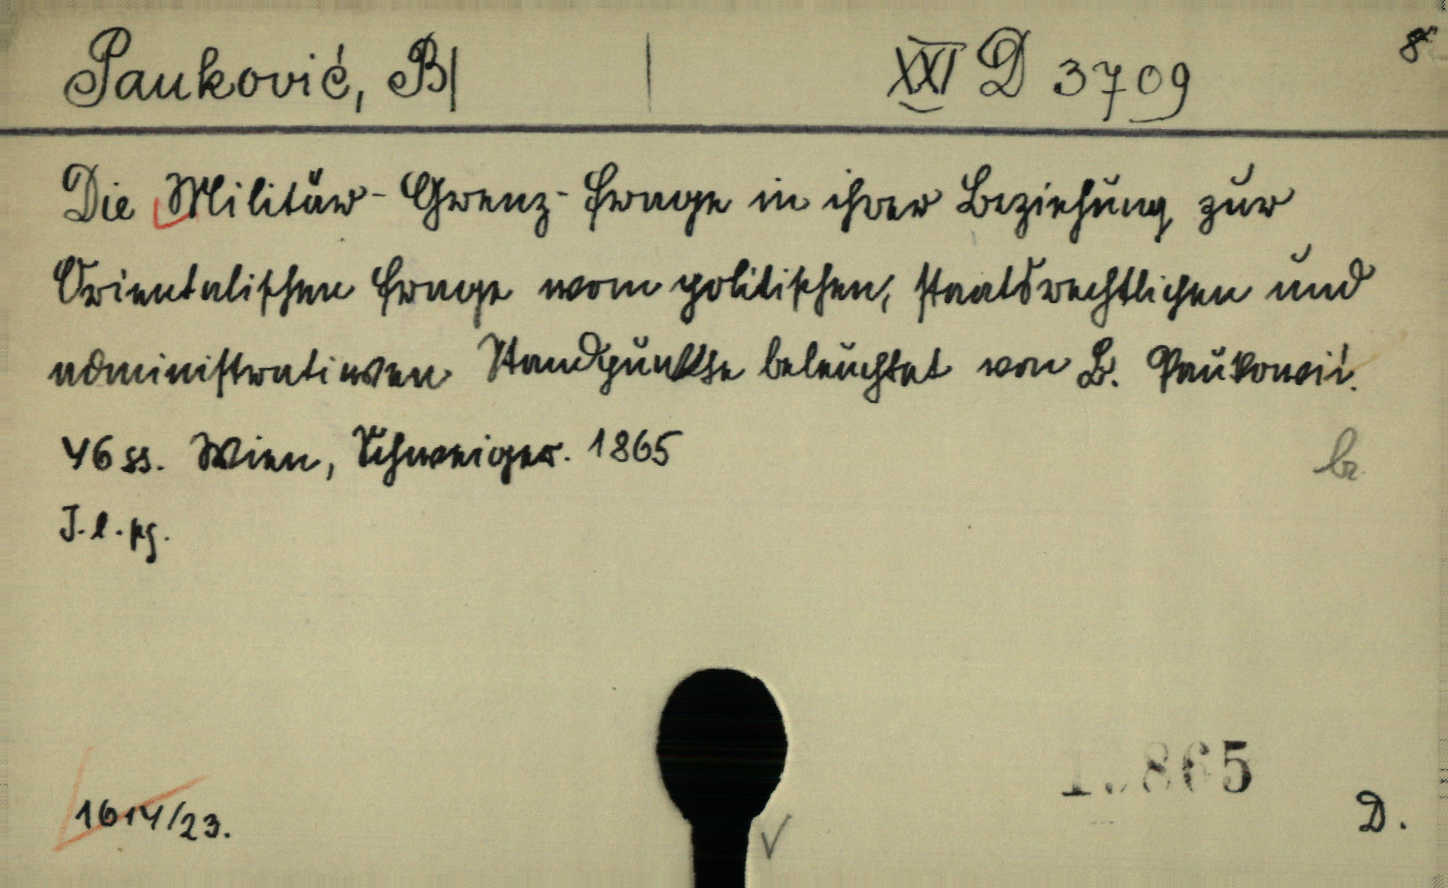 Pauković, B| | XXI D 3709 8°
Die Militär-Grenz-Frage in ihrer Beziehung zur
Orientalischen Frage vom politischen, staatsrechtlichen und
administrativen Standpunkte beleuchtet von B. Pauković.
46 ss. Wien, Schweiger. 1865
br.
J. l. pg.
865
1614/23.
D.